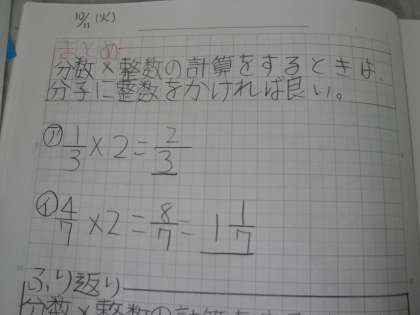 10/11(火)
まとめ
分数×整数の計算をするときは、
分子に整数をかければ良い。
㋐ 1/3 × 2 = 2/3
㋑ 4/7 × 2 = 8/7 = 1 1/7
ふり返り
分数×整数の計算をする